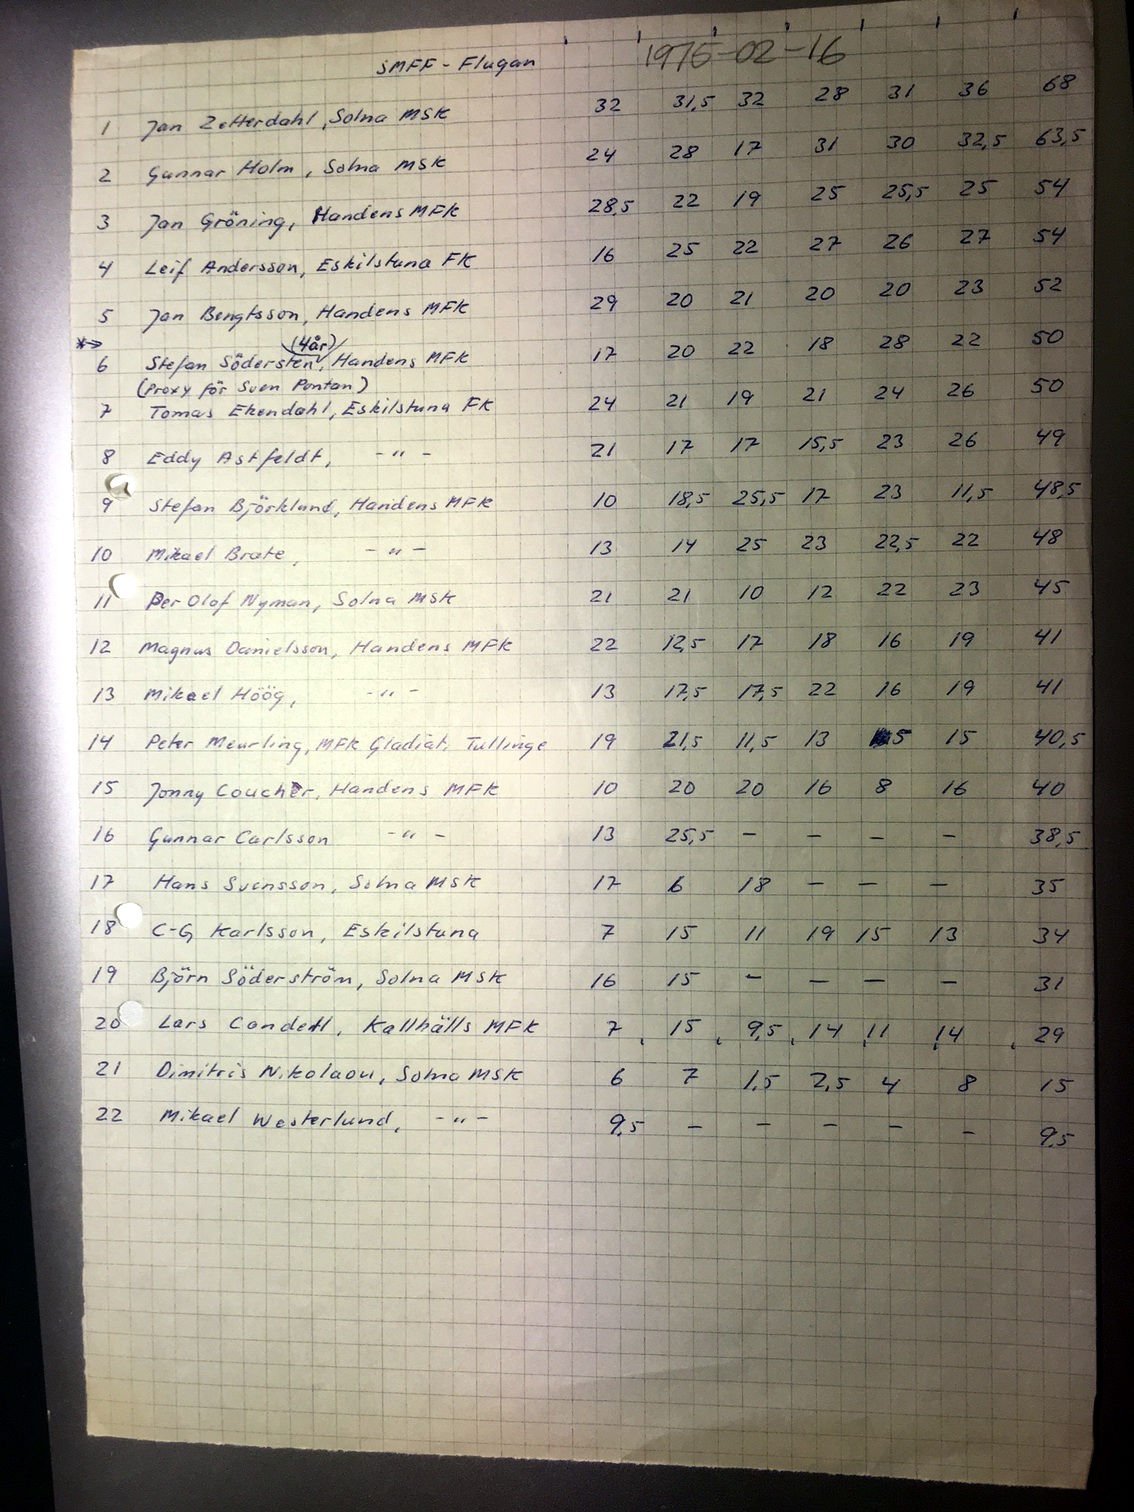 SMFF - Flugan 1975-02-16
1 Jan Zetterdahl, Solna MSK 32 31,5 32 28 31 36 68
2 Gunnar Holm, Solna MSK 24 28 17 31 30 32,5 63,5
3 Jan Gröning, Handens MFK 28,5 22 19 25 25,5 25 54
4 Leif Andersson, Eskilstuna FK 16 25 22 27 26 27 54
5 Jan Bengtsson, Handens MFK 29 20 21 20 20 23 52
(4år)
6 Stefan Södersten, Handens MFK 17 20 22 18 28 22 50
(Proxy för Sven Pontan)
7 Tomas Ekendahl, Eskilstuna FK 24 21 19 21 24 26 50
8 Eddy Astfeldt, -"- 21 17 17 15,5 23 26 49
9 Stefan Björklund, Handens MFK 10 18,5 25,5 17 23 11,5 48,5
10 Mikael Brate, -"- 13 14 25 23 22,5 22 48
11 Per Olof Nyman, Solna MSK 21 21 10 12 22 23 45
12 Magnus Danielsson, Handens MFK 22 12,5 17 18 16 19 41
13 Mikael Höög, -"- 13 17,5 17,5 22 16 19 41
14 Peter Meurling, MFK Gladiat. Tullinge 19 21,5 11,5 13 5 15 40,5
15 Jonny Coucher, Handens MFK 10 20 20 16 8 16 40
16 Gunnar Carlsson -"- 13 25,5 - - - - 38,5
17 Hans Svensson, Solna MSK 17 6 18 - - - 35
18 C-G Karlsson, Eskilstuna 7 15 11 19 15 13 34
19 Björn Söderström, Solna MSK 16 15 - - - - 31
20 Lars Candell, Kallhälls MFK 7 15 9,5 14 11 14 29
21 Dimitris Nikolaou, Solna MSK 6 7 1,5 2,5 4 8 15
22 Mikael Westerlund, -"- 9,5 - - - - - 9,5